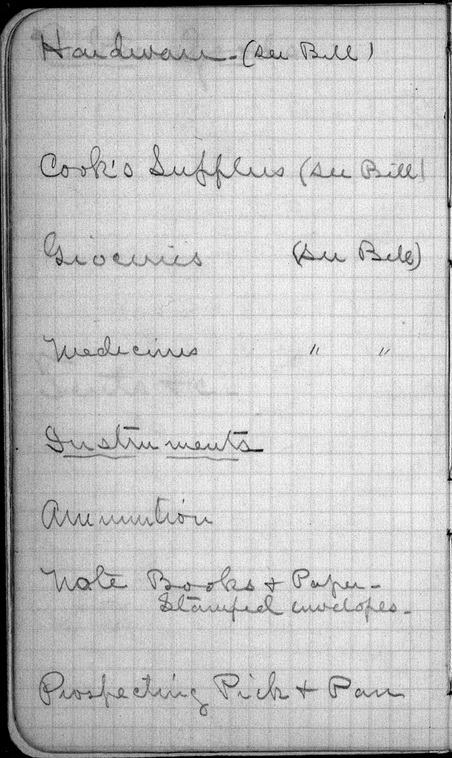 Hardware - (see Bill)
Cook's Supplies (see Bill)
Groceries (see Bill)
Medicines " "
Instruments
Ammunition
Note Books & Paper -
Stamped envelopes -
Prospecting Pick & Pan